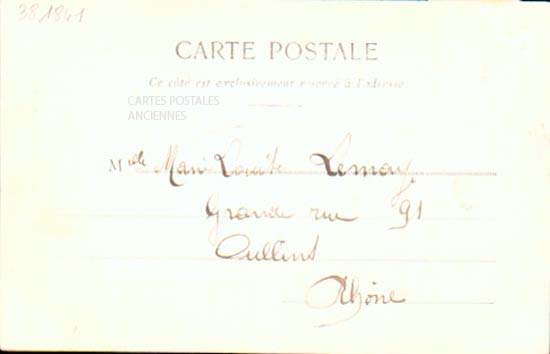 381841
CARTE POSTALE
Ce côté est exclusivement réservé à l'adresse
CARTES POSTALES
ANCIENNES
Mlle Marie Louise
Grande rue 91
Oullins
Rhône